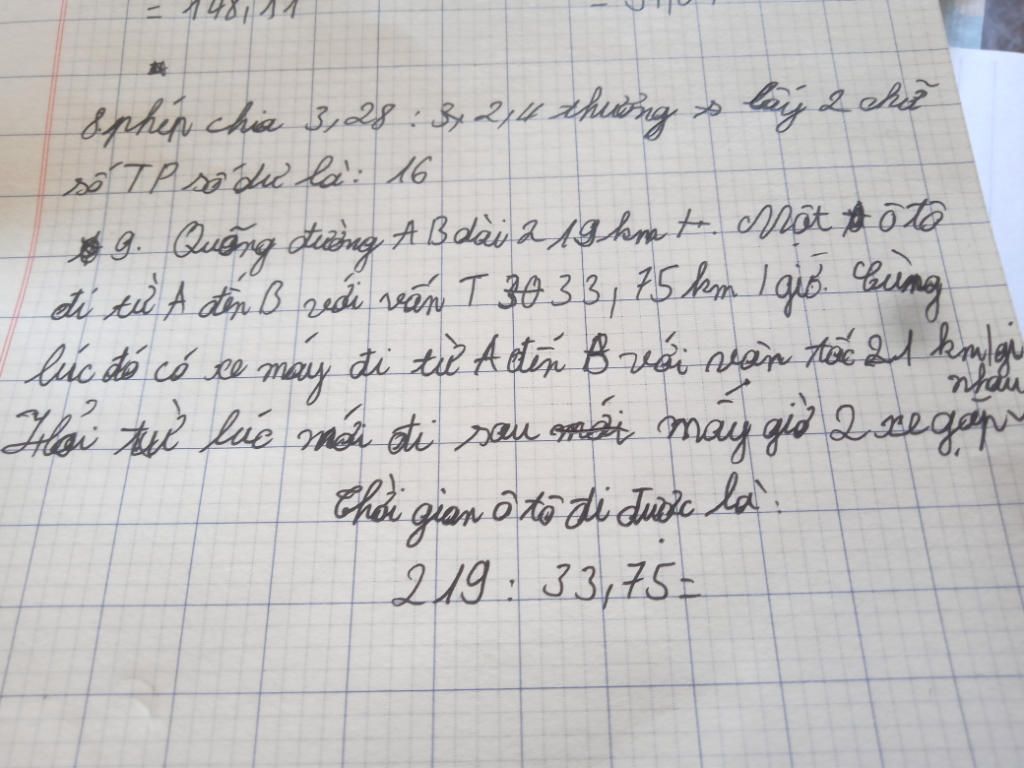 = 148,11
8 phép chia 3,28 : 3,2,4 thưởng → lấy 2 chữ
số TP số dư là: 16
9. Quãng đường AB dài 219 km +. Một ô tô
đi từ A đến B với vấn T 33,75 km / giờ. Cùng
lúc đó có xe máy đi từ A đến B với vận tốc 21 km/gi
nhau
Hỏi từ lúc mới đi sau mấy giờ 2 xe gặp
Thời gian ô tô đi được là:
219 : 33,75 =